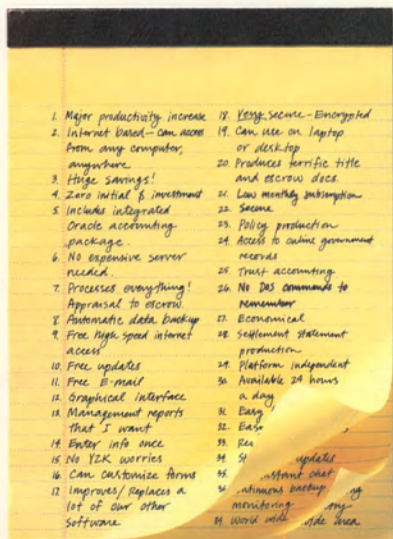 1. Major productivity increase
2. Internet based – can access
from any computer,
anywhere
3. Huge savings!
4. Zero initial $ investment
5. Includes integrated
Oracle accounting
package.
6. No expensive server
needed.
7. Processes everything!
Appraisal to escrow.
8. Automatic data backup
9. Free high speed internet
access
10. Free updates
11. Free E-mail
12. Graphical interface
13. Management reports
that I want
14. Enter info once
15. No Y2K worries
16. Can customize forms
17. Improves/Replaces a
lot of our other
software
18. Very secure – Encrypted
19. Can use on laptop
or desktop
20. Produces terrific title
and escrow docs.
21. Low monthly subscription
22. Secure
23. Policy production
24. Access to online government
records
25. Trust accounting
26. No DOS commands to
remember
27. Economical
28. Settlement statement
production
29. Platform independent
30. Available 24 hours
a day
31. Easy
32.
33.
34. updates
35. instant chat
36. backup
monitoring
37. World wide area